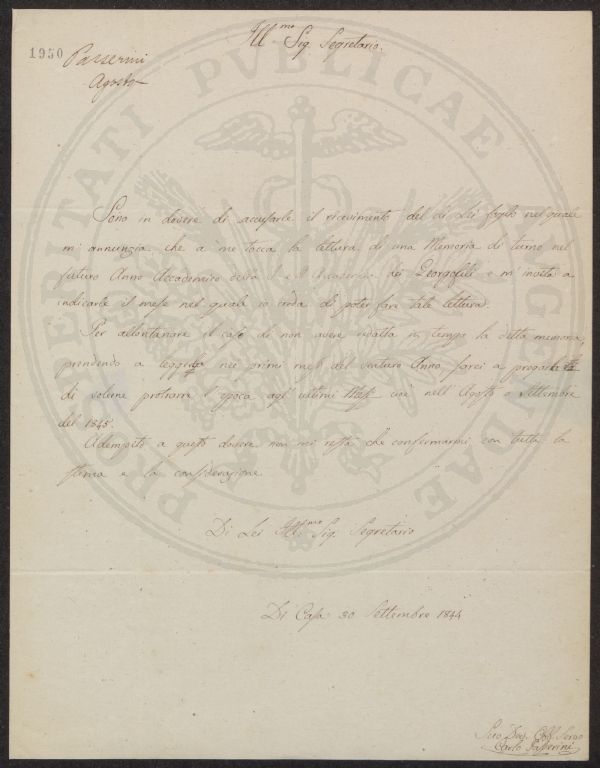 1950
Passerini
Agosto
Ill.mo Sig. Segretario.
Sono in dovere di accusarle il ricevimento del di Lei foglio nel quale
mi annunzia che a me tocca la lettura di una Memoria di turno nel
futuro Anno Accademico dei Georgofili e m'invita a
indicarle il mese nel quale io creda di poter fare tale lettura.
Per allontanare il caso di non avere ridotta in tempo la detta memoria,
prendendo a leggerla nei primi mesi del venturo Anno sarei a pregarla
di volerne protrarre l'epoca agli ultimi Mesi cioè nell'Agosto o Settembre
del 1845.
Adempito a questo dovere non mi resta che confermarmi con tutta la
stima e la considerazione
Di Lei Ill.mo Sig. Segretario
Di Casa 30 Settembre 1844
Suo Dev. Obb. Servo
Carlo Passerini
PROSPERITATI PVBLICAE AVGENDAE